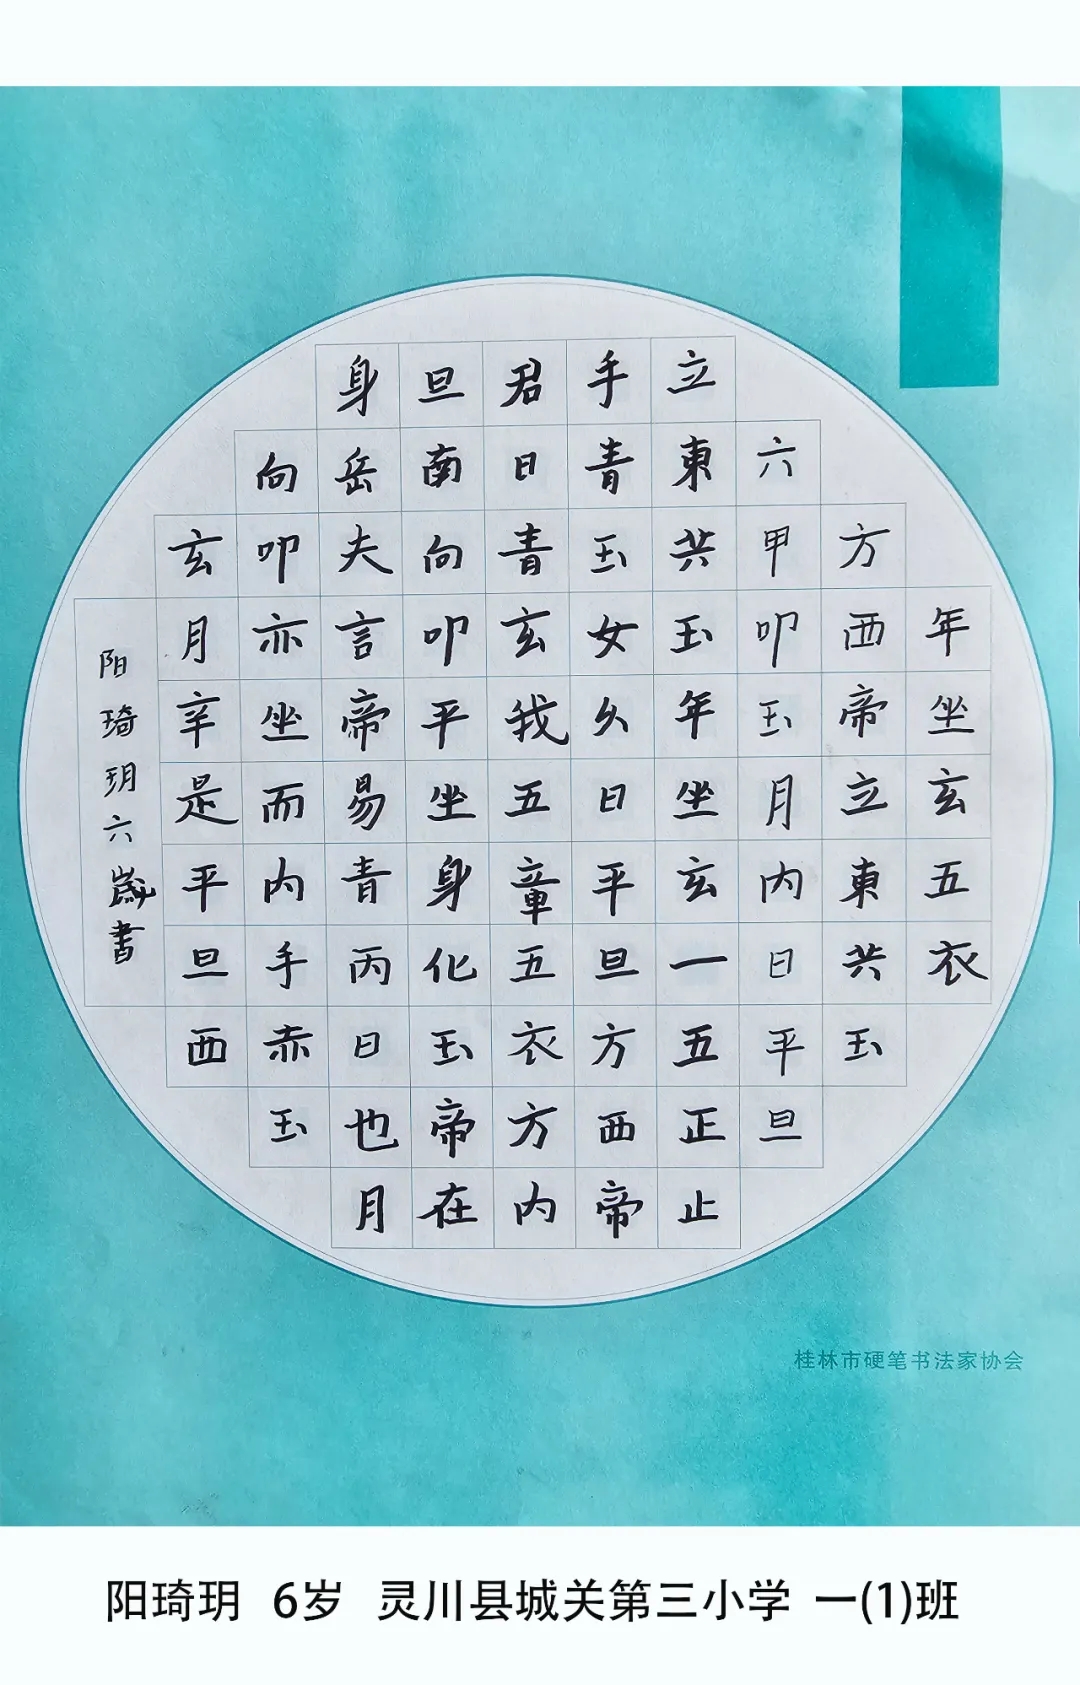 年坐玄五衣
方西帝立東共玉
六甲叩玉月内日平旦
立東共玉年坐玄一五正止
手青玉女久日平旦方西帝
君日青玄我五章五衣方内
旦南向叩平坐身化玉帝在
身岳夫言帝易青丙日也月
向叩亦坐而内手赤玉
玄月辛是平旦西
阳琦玥六歲書
桂林市硬笔书法家协会
阳琦玥 6岁 灵川县城关第三小学 一(1)班